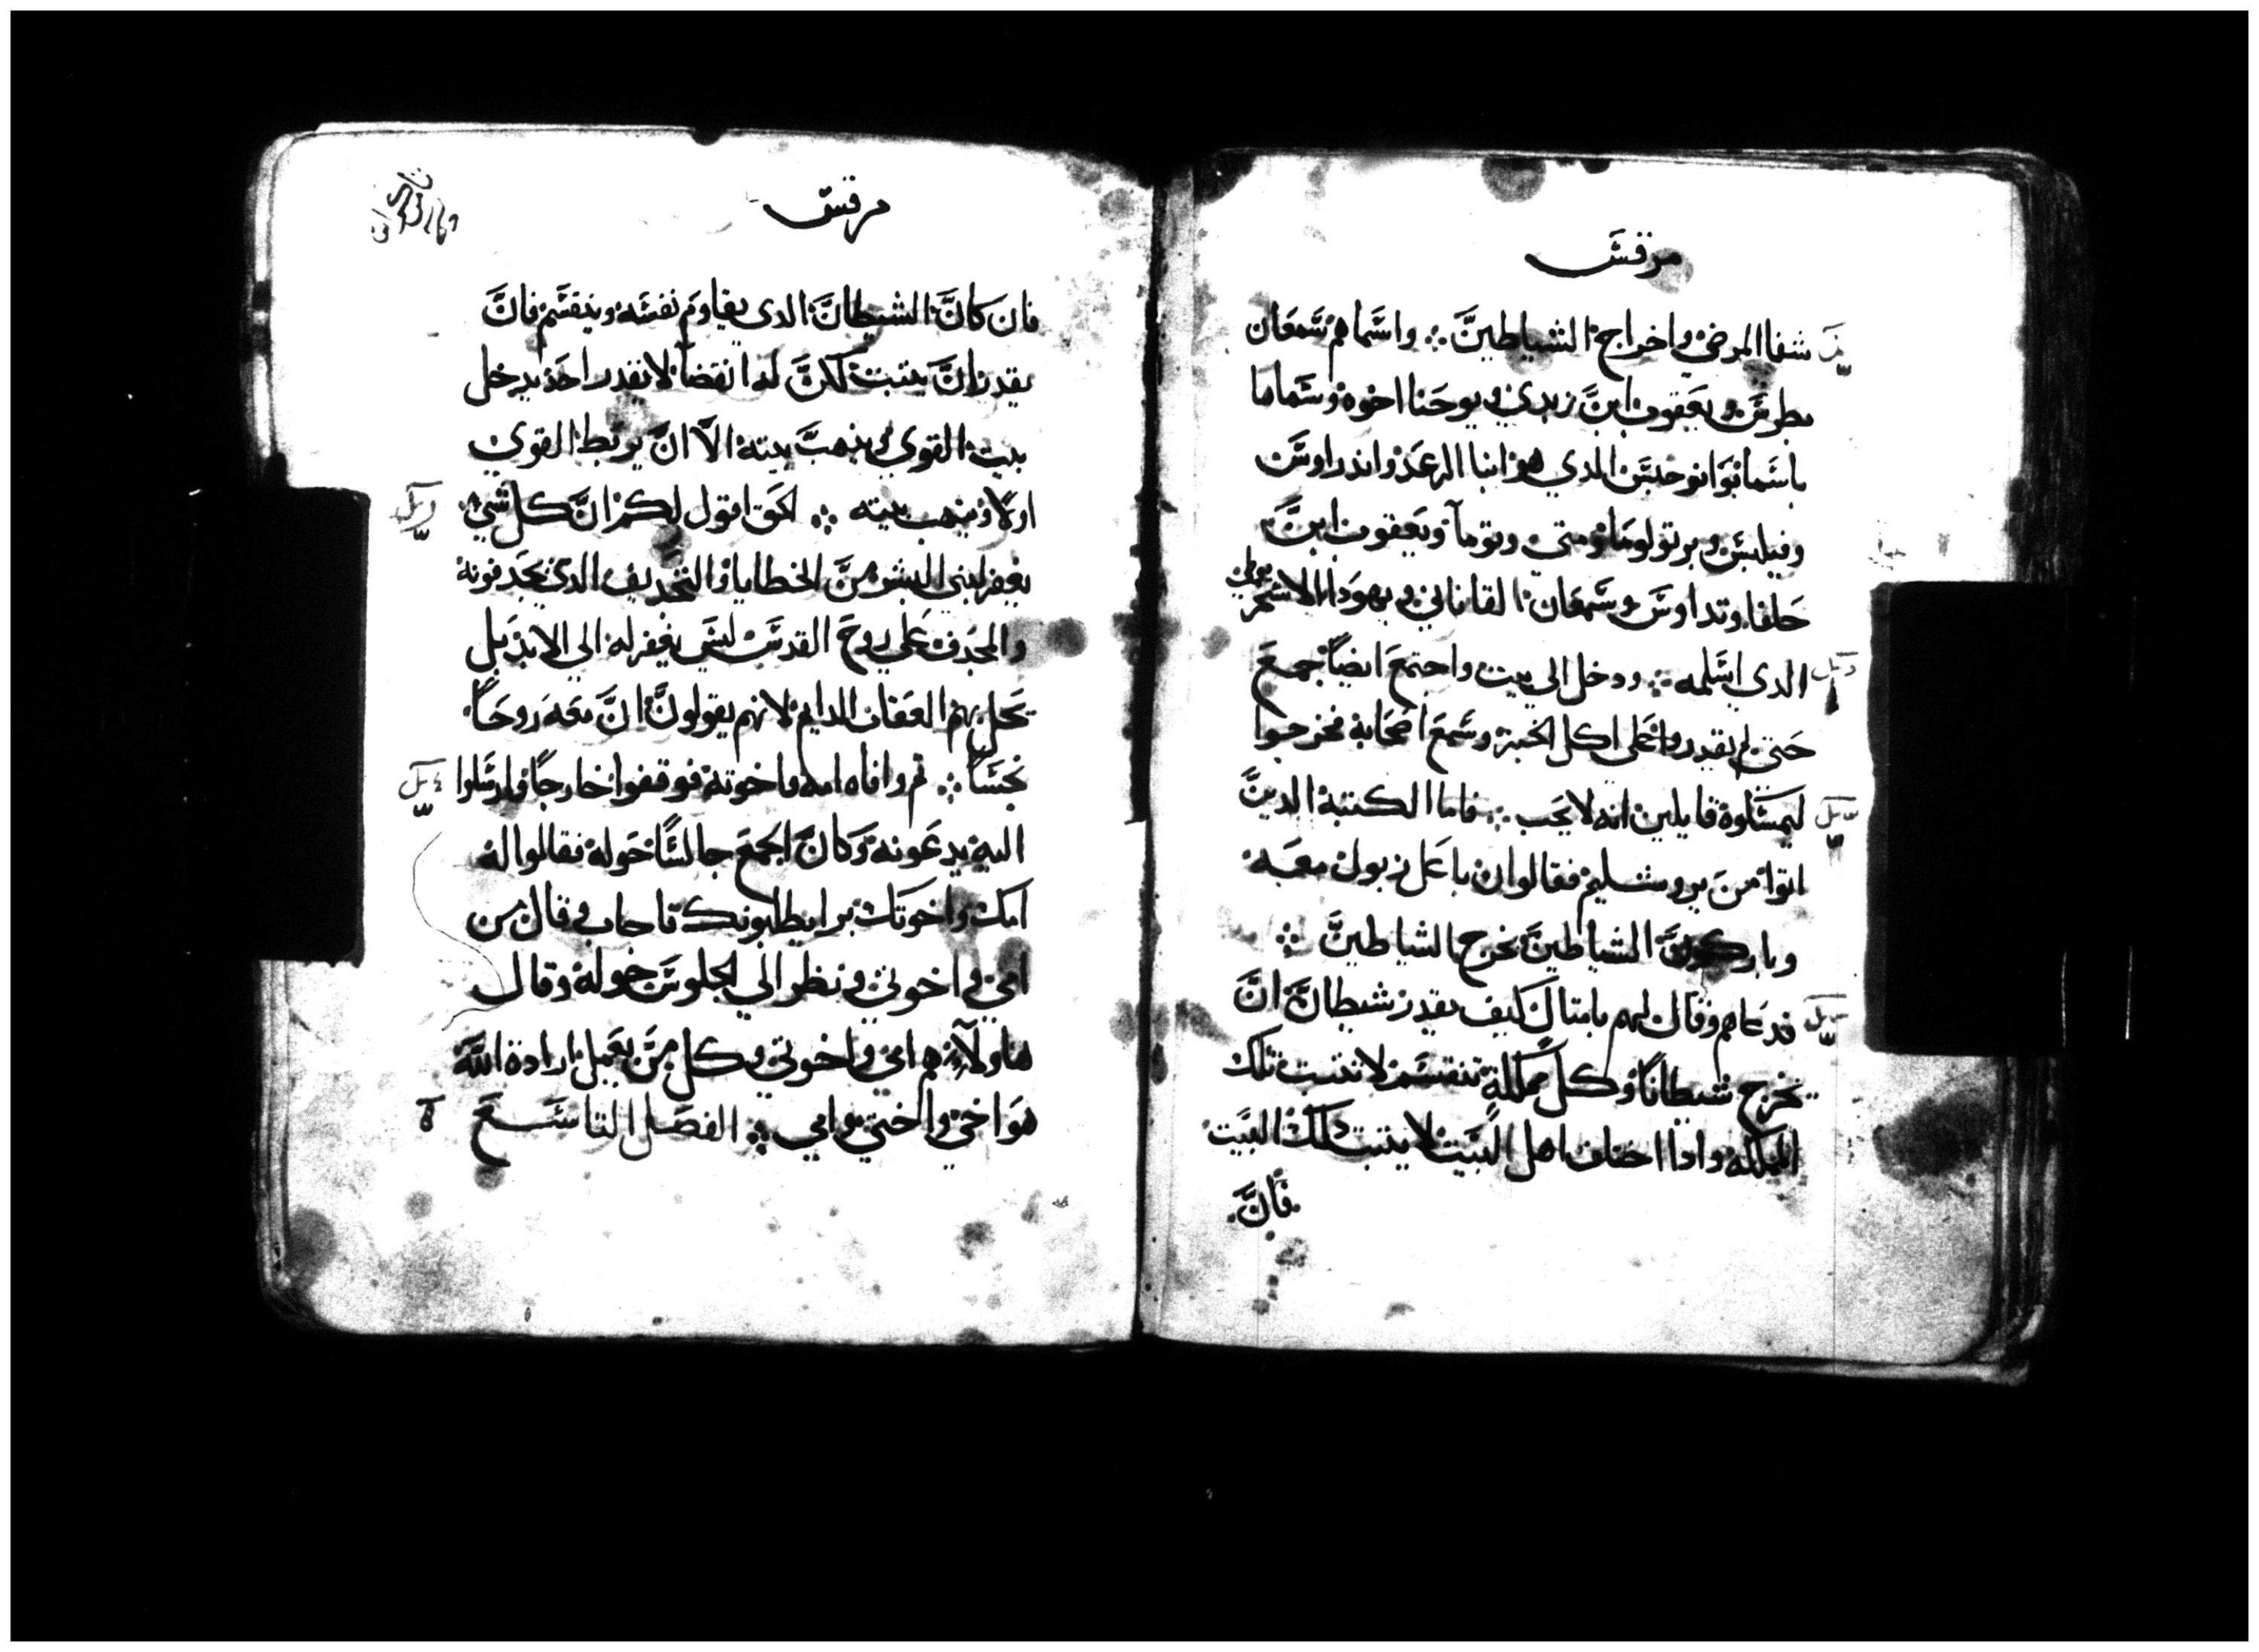 مرقس
شفا المرضي واخراج الشياطين واسماهم سمعان
بطرس ويعقوب ابن زبدي ويوحنا اخوه وسماهما
باسما بوانوجس الدي هو ابنا الرعد واندراوس
وفيلبس وبرتولوما ومتي وتوما ويعقوب ابن
حلفا وتداوس وسمعان القاناني ويهودا الاسخريوطي
الدي اسلمه ودخل الي بيت واجتمع ايضاً جمع
حتي لم يقدروا علي اكل الخبز وسمع اصحابه فخرجوا
ليمسكوه قايلين انه لا يجب فاما الكتبة الدين
اتوا من يروشليم فقالوا ان باعل زبول معه
وباركون الشياطين يخرج الشياطين
فدعاهم وقال لهم بامتال كيف يقدر شيطان ان
يخرج شيطاناً وكل مملكةٍ تنقسم لا تتبت تلك
المملكه وادا اختلف اهل البيت لا يتبت دلك البيت
فان
مرقس
فان كان الشيطان الدي يقاوم نفسه وينقسم فان
يقدر ان يتبت لكن له انقضاً لا يقدر احد يدخل
بيت القوي وينهب بيته الا ان يربط القوي
اولاً وينهب بيته الحق اقول لكم ان كل شي
يغفر لبني البشر من الخطايا والتجديف الدي يجدفونه
والمجدف علي روح القدس ليس يغفر له الي الابد بل
تحل بهم العقاب الدايم لانهم يقولون ان معه روحاً
نجساً تم وافاه امه واخوته فوقفوا خارجاً وارسلوا
اليه يدعونه وكان الجمع جالساً حوله فقالوا له
امك واخوتك برا يطلبونك فاجاب وقال من
امي واخوتي ونظر الي الجلوس حوله وقال
هاولآء هم امي واخوتي وكل من يعمل ارادة الله
هو اخي واختي وامي الفصل التاسع